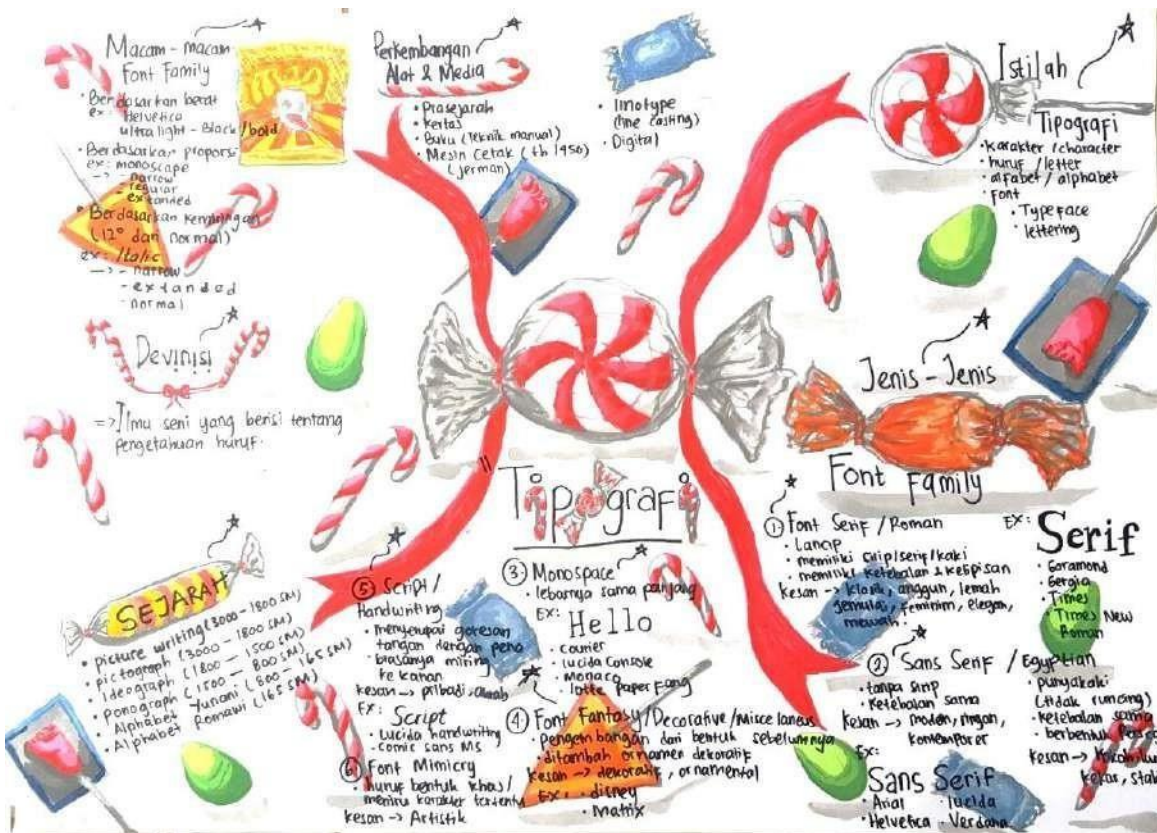 Macam - macam
Font Family
• Berdasarkan berat
ex: Helvetica
ultra light - Black/bold
• Berdasarkan proporsi
ex: monoscape
-> - narrow
- regular
- extanded
• Berdasarkan kemiringan
(12° dan normal)
ex: Italic
-> - narrow
- extanded
- normal
Devinisi
=> Ilmu seni yang berisi tentang
pengetahuan huruf.
SEJARAH
• picture writing (3000 - 1800 SM)
• pictograph (3000 - 1800 SM)
• Ideograph (1800 - 1500 SM)
• ponograph (1500 - 800 SM)
• Alphabet Yunani (800 - 165 SM)
• Alphabet Romawi (165 SM)
Perkembangan
Alat & Media
• Prasejarah
• Kertas
• Buku (Teknik manual)
• Mesin Cetak (th 1450)
(jerman)
• linotype
(line casting)
• Digital
Istilah
Tipografi
• karakter / character
• huruf / letter
• alfabet / alphabet
• Font
• Typeface
• lettering
Tipografi
Jenis - Jenis
Font Family
① Font Serif / Roman
• Lancip
• memiliki sirip/serif/kaki
• memiliki ketebalan & ketipisan
kesan -> klasik, anggun, lemah
gemulai, feminim, elegan,
mewah.
EX:
Serif
• Garamond
• Gergia
• Times
• Times New
Roman
② Sans Serif / Egyptian
• tanpa sirip
• ketebalan sama
kesan -> modern, ringan,
kontemporer
Ex:
Sans Serif
• Arial • lucida
• Helvetica • Verdana
punya kaki
(tidak runcing)
• ketebalan sama
• berbentuk
kesan ->
kekar,
③ Monospace
• lebarnya sama panjang
EX:
Hello
• courier
• lucida console
• monaco
• lotte paper Fang
④ Font Fantasy/Decorative/Miscelaneus
• Pengembangan dari bentuk sebelumnya
• ditambah ornamen dekoratif
kesan -> dekoratif, ornamental
EX: • disney
• matrix
⑤ Script /
Handwriting
• menyerupai goresan
tangan dengan pena
• biasanya miring
ke kanan
kesan -> pribadi, akrab
EX:
Script
• Lucida handwriting
• comic sans MS
⑥ Font Mimicry
• huruf bentuk khas/
meniru karakter tertentu
kesan -> Artistik